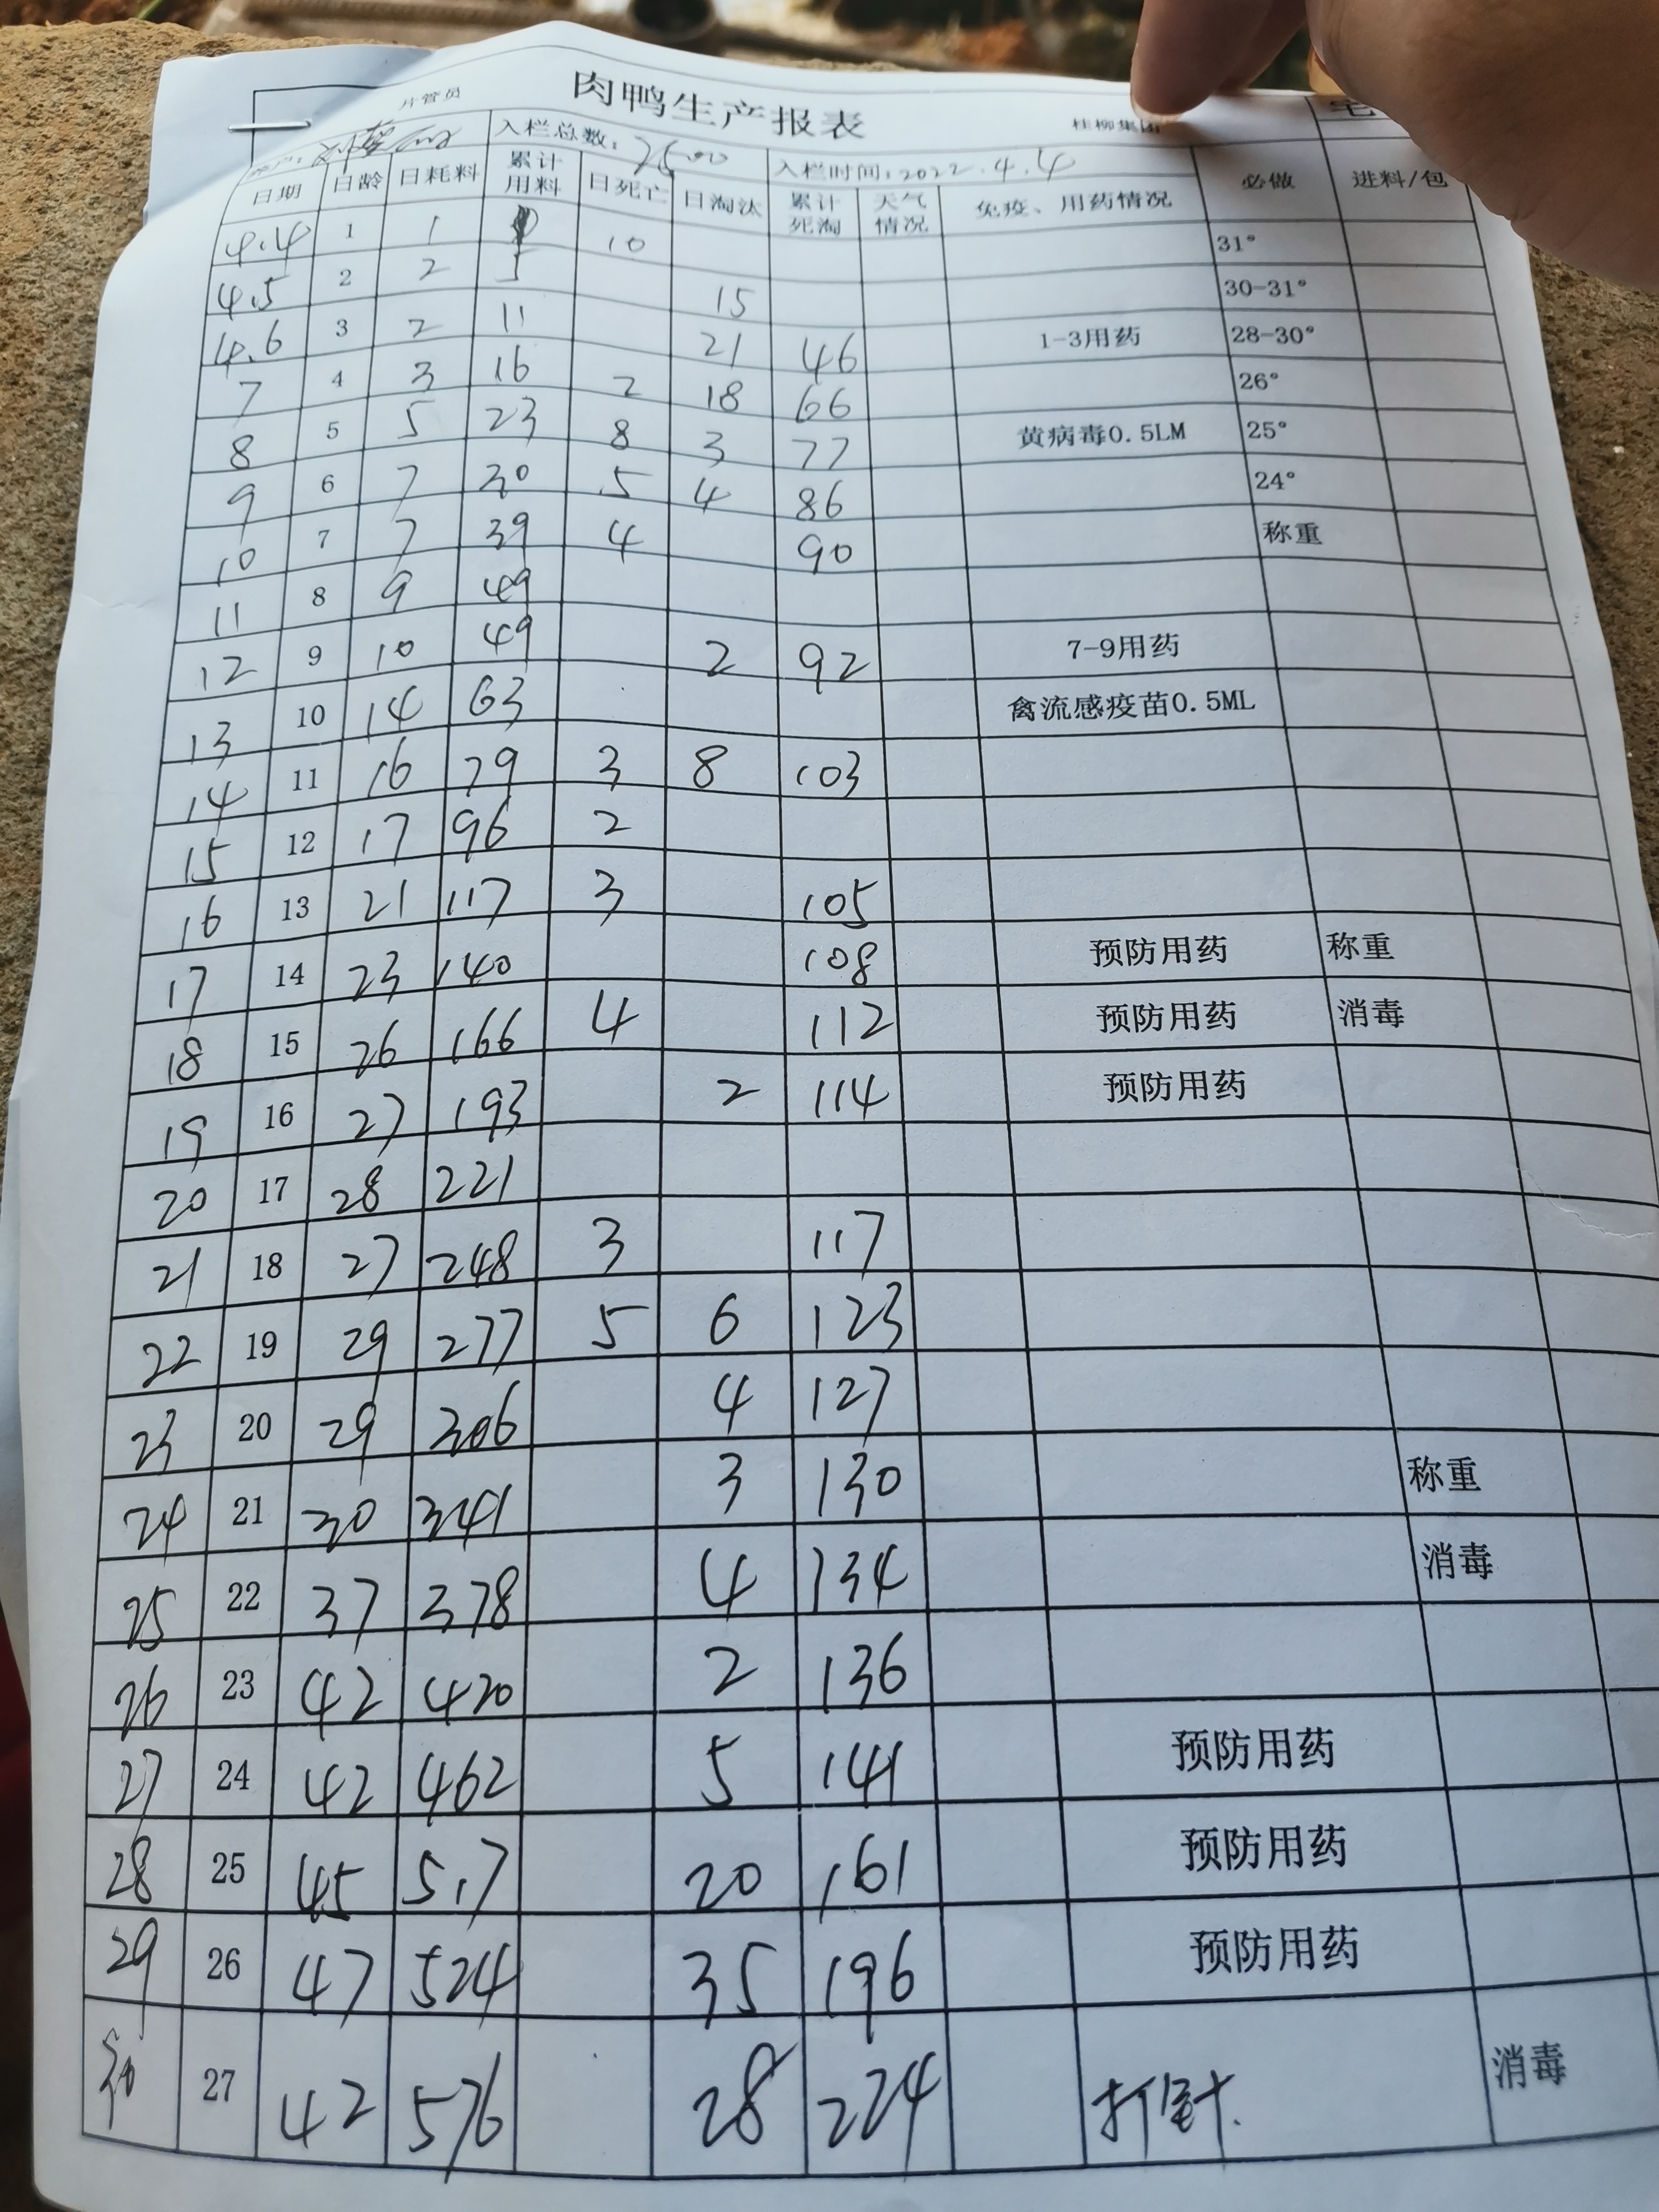 肉鸭生产报表
片管员 桂柳集团
入栏总数：7500 入栏时间：2022.4.4
日期 日龄 日耗料 累计用料 日死亡 日淘汰 累计死淘 天气情况 免疫、用药情况 必做 进料/包
4.4 1 1 10 31°
4.5 2 2 5 15 30-31°
4.6 3 2 11 21 46 1-3用药 28-30°
7 4 3 16 2 18 66 26°
8 5 5 23 8 3 77 黄病毒0.5LM 25°
9 6 7 30 5 4 86 24°
10 7 7 39 4 90 称重
11 8 9 49
12 9 10 49 2 92 7-9用药
13 10 14 63 禽流感疫苗0.5ML
14 11 16 79 3 8 103
15 12 17 96 2
16 13 21 117 3 105
17 14 23 140 108 预防用药 称重
18 15 26 166 4 112 预防用药 消毒
19 16 27 193 2 114 预防用药
20 17 28 221
21 18 27 248 3 117
22 19 29 277 5 6 123
23 20 29 306 4 127
24 21 30 341 3 130 称重
25 22 37 378 4 134 消毒
26 23 42 420 2 136
27 24 42 462 5 141 预防用药
28 25 45 517 20 161 预防用药
29 26 47 524 35 196 预防用药
27 42 576 28 224 打针 消毒